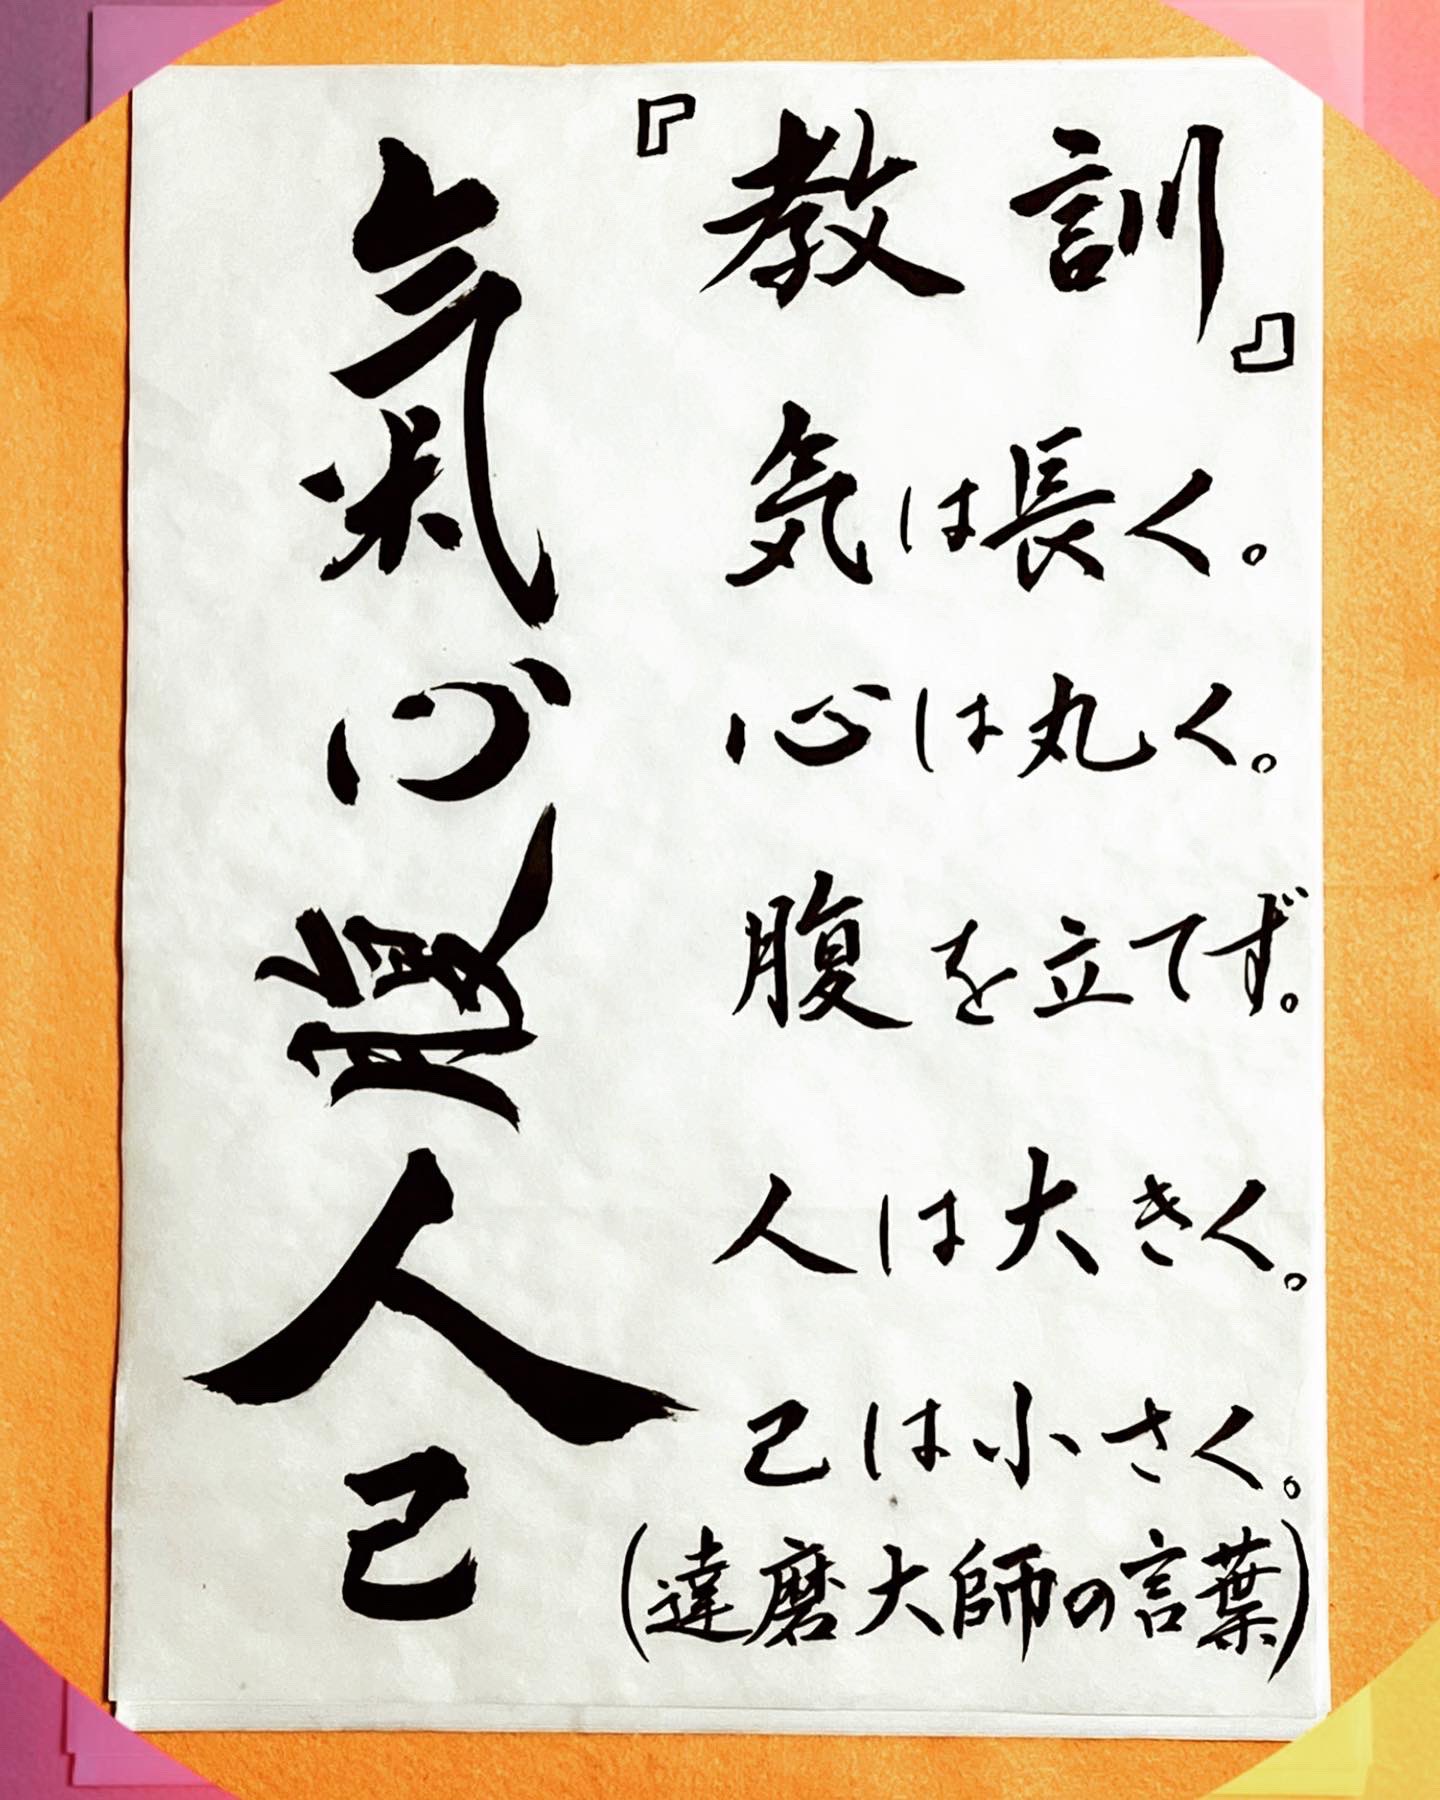 『教訓』
気は長く。
心は丸く。
腹を立てず。
人は大きく。
己は小さく。
(達磨大師の言葉)
氣心腹人己